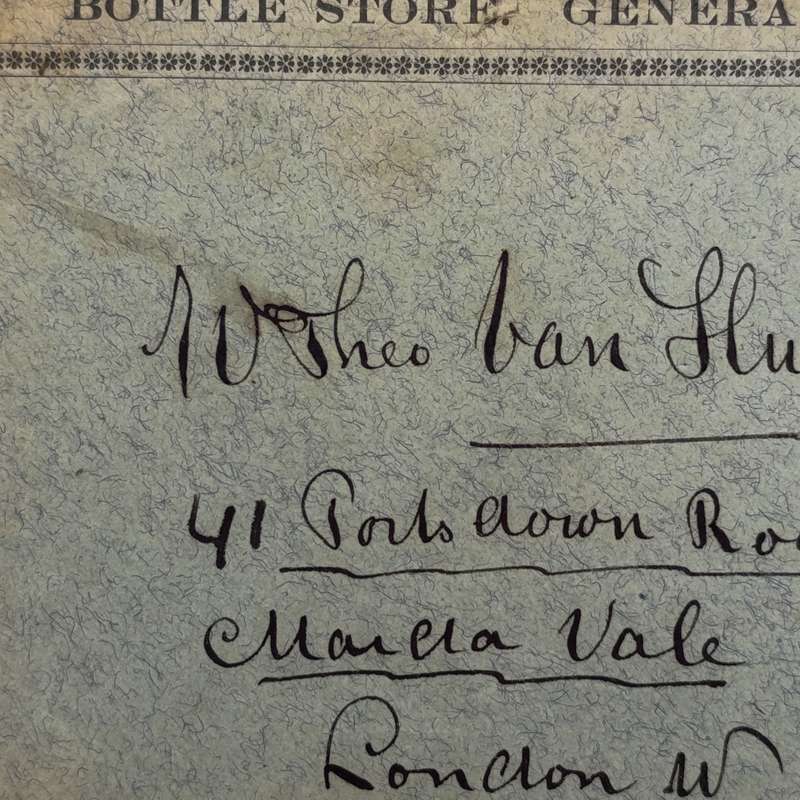 BOTTLE STORE. GENERA
Mr Theo Van Hu
41 Portsdown Roa
Maida Vale
London W